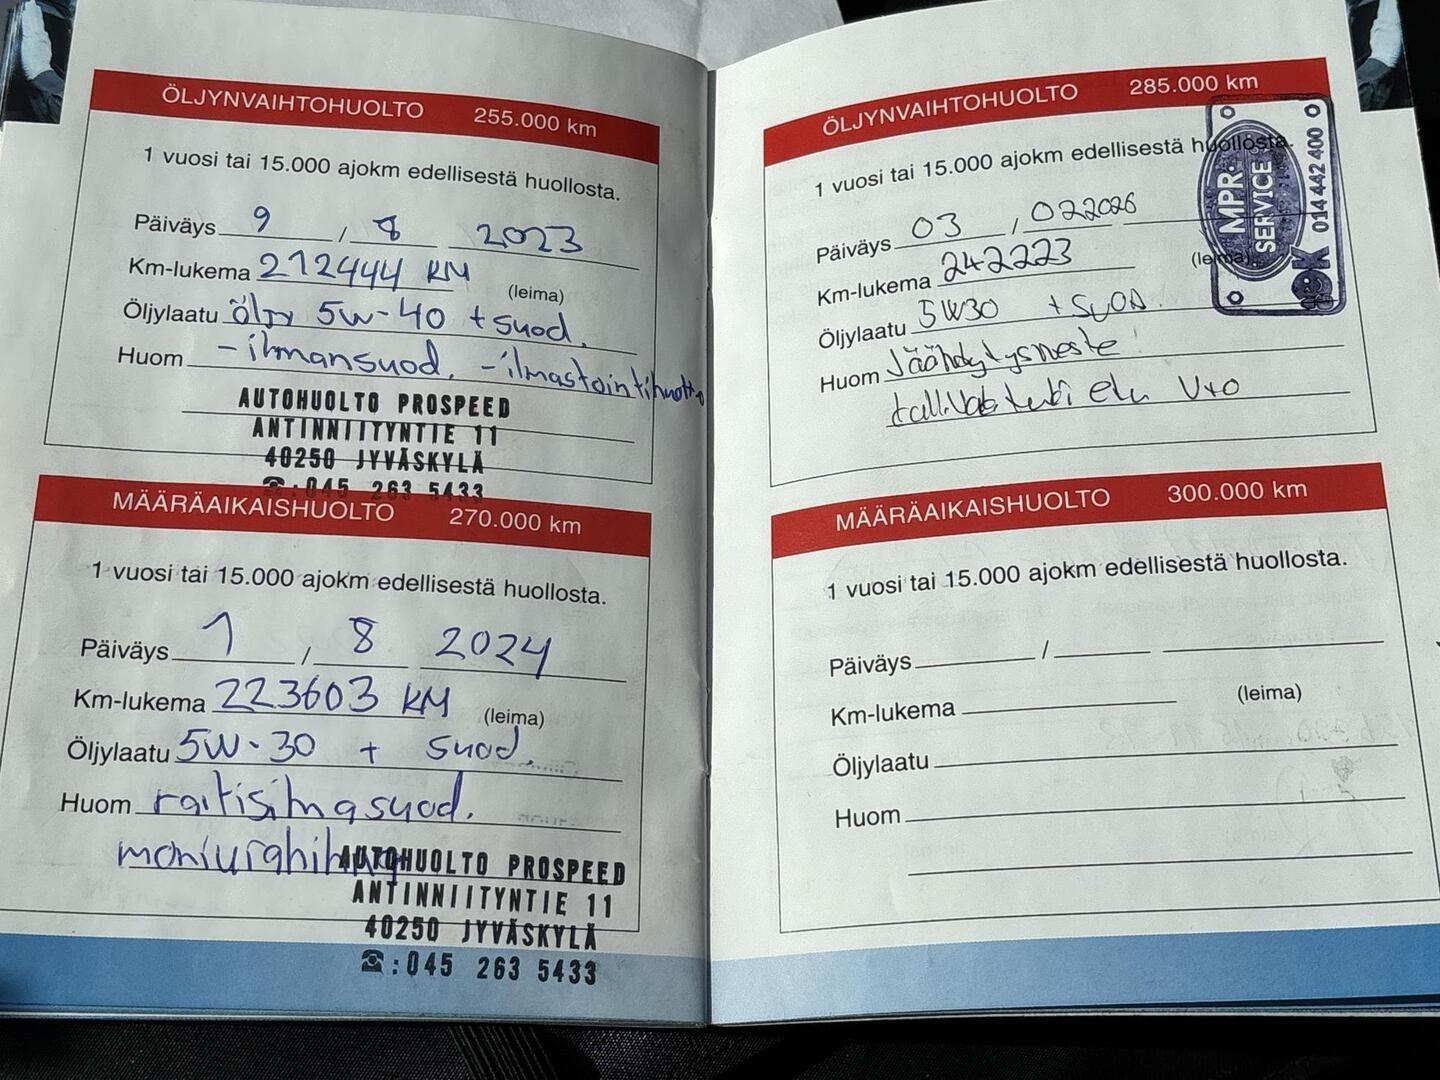 ÖLJYNVAIHTOHUOLTO 255.000 km
1 vuosi tai 15.000 ajokm edellisestä huollosta.
Päiväys 9 / 8 2023
Km-lukema 212444 KM (leima)
Öljylaatu öljy 5W-40 + suod.
Huom -ilmansuod. -ilmastointihuolto
AUTOHUOLTO PROSPEED
ANTINNIITYNTIE 11
40250 JYVÄSKYLÄ
☎:045 263 5433
MÄÄRÄAIKAISHUOLTO 270.000 km
1 vuosi tai 15.000 ajokm edellisestä huollosta.
Päiväys 1 / 8 2024
Km-lukema 223603 KM (leima)
Öljylaatu 5W-30 + suod.
Huom raitisilmasuod.
moniurahihna
AUTOHUOLTO PROSPEED
ANTINNIITYNTIE 11
40250 JYVÄSKYLÄ
☎:045 263 5433
ÖLJYNVAIHTOHUOLTO 285.000 km
1 vuosi tai 15.000 ajokm edellisestä huollosta.
Päiväys 03 / 02 2026
Km-lukema 242223 (leima)
Öljylaatu 5W30 + SUOD.
Huom Jäähdytysneste
etu V+O
MPR-
SERVICE
014 442 400
MÄÄRÄAIKAISHUOLTO 300.000 km
1 vuosi tai 15.000 ajokm edellisestä huollosta.
Päiväys /
Km-lukema (leima)
Öljylaatu
Huom